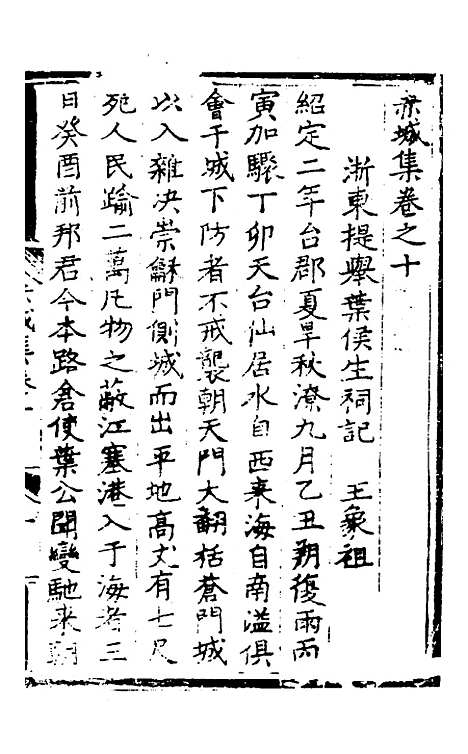 赤城集卷之十
浙東提舉葉侯生祠記　王象祖
紹定二年台郡夏旱秋潦九月乙丑朔復雨丙
寅加驟丁卯天台仙居水自西來海自南溢俱
會于城下防者不戒襲朝天門大翻括蒼門城
以入雜決崇龢門側城而出平地高丈有七尺
死人民踰二萬凡物之蔽江塞港入于海者三
日癸酉前邦君今本路倉使葉公聞變馳來朝